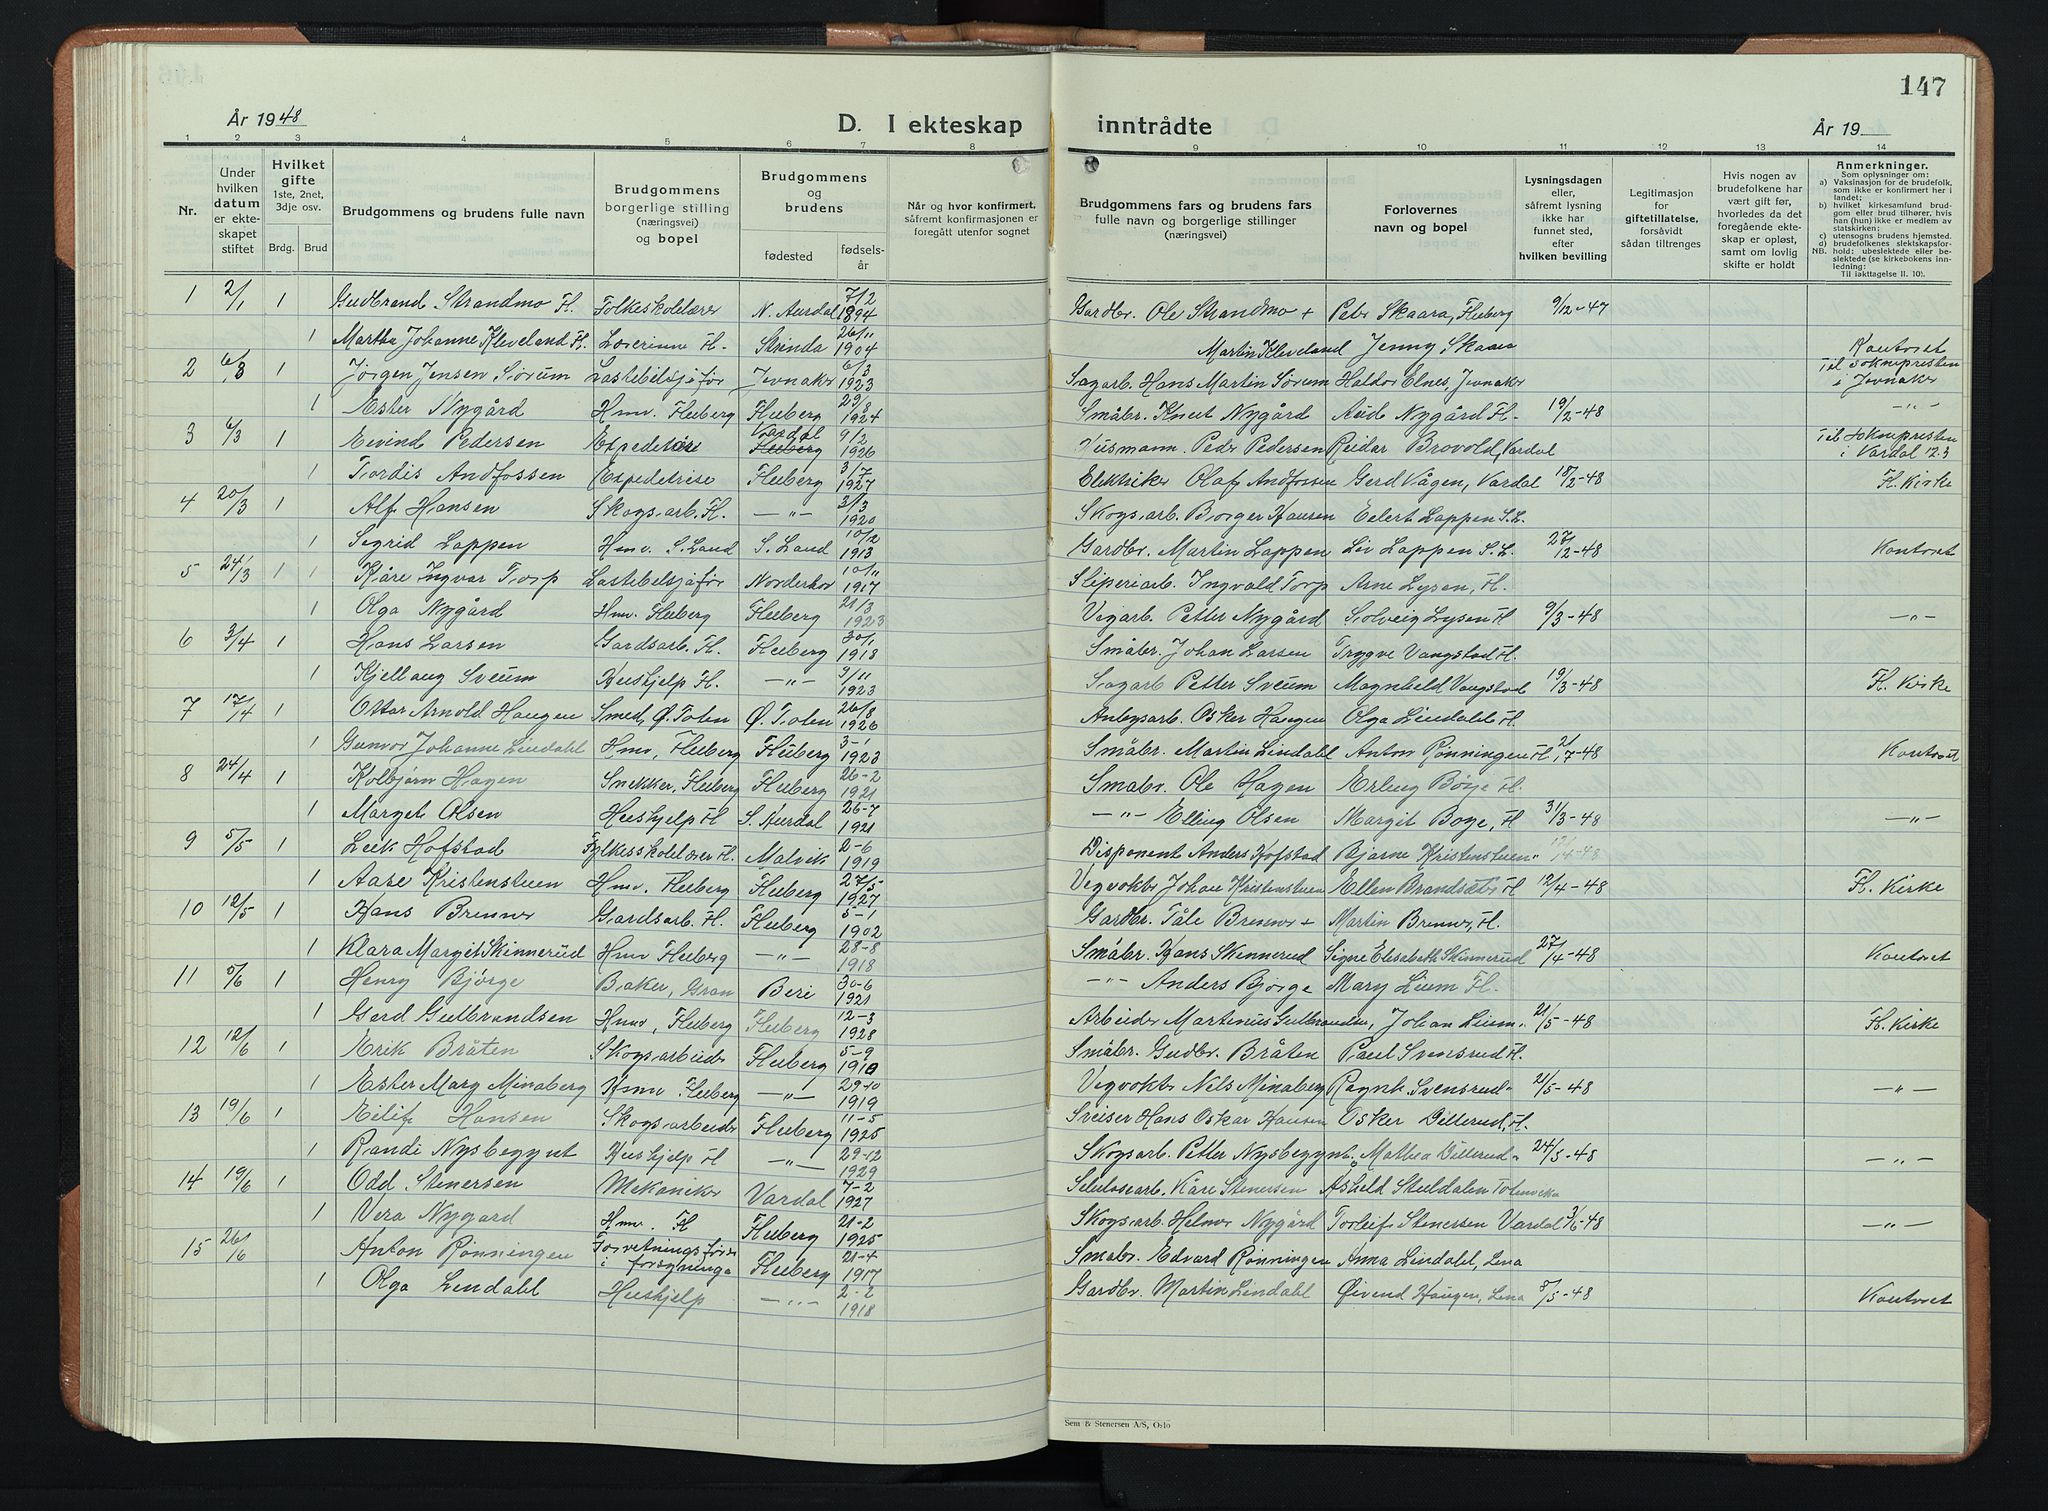 147
År 1948
D. I ekteskap inntrådte
År 19
1 2 3 4 5 6 7 8 9 10 11 12 13 14
Nr.
Under hvilken datum er ekteskapet stiftet
Hvilket gifte 1ste, 2net, 3dje osv.
Brdg. Brud
Brudgommens og brudens fulle navn
Brudgommens borgerlige stilling (næringsvei) og bopel
Brudgommens og brudens
fødested
fødselsår
Når og hvor konfirmert, såfremt konfirmasjonen er foregått utenfor sognet
Brudgommens fars og brudens fars fulle navn og borgerlige stillinger (næringsvei)
Forlovernes navn og bopel
Lysningsdagen eller, såfremt lysning ikke har funnet sted, efter hvilken bevilling
Legitimasjon for giftetillatelse, forsåvidt sådan tiltrenges
Hvis nogen av brudefolkene har vært gift før, hvorledes da det foregående ekteskap er opløst, samt om lovlig skifte er holdt
Anmerkninger.
Som oplysninger om:
a) Vaksinasjon for de brudefolk, som ikke er konfirmert her i landet;
b) hvilket kirkesamfund brudgom eller brud tilhører, hvis han (hun) ikke er medlem av statskirken;
c) utensogns brudens hjemsted.
d) brudefolkenes slektskapsforhold: ubeslektede eller beslektede (se kirkebokens innledning:
NB. Til iakttagelse II. 10).
1 2/1 1 Gudbrand Strandmo Fl. Folkeskolelærer N. Aurdal 7/2 1894 Gardbr. Ole Strandmo + Peter Skaara, Fluberg 9/12-47
1 Martha Johanne Kleveland Fl. Lærerinne Fl. Strinda 26/11 1904 Martin Kleveland Jenny Skaara Kontoret
2 6/3 1 Jørgen Jensen Sørum Lastebilsjåfør Jevnaker 6/3 1923 Sagarb. Hans Martin Sørum Haldor Elnes, Jevnaker Til sokneprästen i Jevnaker
1 Ester Nygård Hmv. Fluberg Fluberg 29/8 1924 Småbr. Knut Nygård Nygård Fl. 19/2-48 -"-
3 6/3 1 Eivind Pedersen Vardal Fluberg 9/2 1926 Husmann. Peder Pedersen Reidar Brovold, Vardal Til soknepresten i Vardal 12.3
1 Tordis Andfossen Expeditrise Fluberg 3/7 1927 Elektriker Olaf Andfossen Gerd Vågen, Vardal 18/2-48 Fl. Kirke
4 20/3 1 Alf Hansen Skogsarb. Fl. -"- 31/3 1920 Skogsarb. Borger Hansen Eilert Lappen S.L.
1 Sigrid Lappen Hmv. S. Land S. Land 10/2 1913 Gardbr. Martin Lappen Liv Lappen S.L. 27/2-48 Kontoret
5 24/3 1 1 Kåre Ingvar Torp Lastebilsjåfør Norderhov 10/11 1917 Sliperiarb. Ingvald Torp Arne Lysen, Fl.
1 Olga Nygård Hmv. Fluberg Fluberg 21/3 1923 Vegarb. Petter Nygård Solveig Lysen Fl 9/3-48 -"-
6 3/4 1 Hans Larsen Gardsarb. Fl. Fluberg 30/1 1918 Småbr. Johan Larsen Trygve Vangstad Fl.
1 Kjellaug Sveum Hushjelp Fl. -"- 9/11 1923 Sagarb Petter Sveum Magnhild Vangstad 19/3-48 Fl. Kirke
7 17/4 1 Ottar Arnold Haugen Smed, Ø. Toten Ø. Toten 26/8 1920 Anlegsarb. Oskar Haugen Olga Lindahl Fl.
1 Gunvor Johanne Lindahl Hmv, Fluberg Fluberg 3-1 1923 Småbr. Martin Lindahl Anton Rønningen Fl. Kontoret
8 24/4 1 Kolbjørn Hagen Snekker, Fluberg Fluberg 26-2 1921 Småbr. Ole Hagen Erling Børje Fl.
1 Marget Olsen Hushjelp Fl S. Aurdal 26-7 1921 -"- Elling Olsen Margit Boye, Fl 31/3-48 -"-
9 5/5 1 Leik Hofstad Fylkesskolelærer Fl. Malvik 2-6 1919 Disponent Anders Hofstad Bjarne Kristenstuen " 12/4-48
1 Aase Kristenstuen Hmv. Fluberg Fluberg 27/5 1927 Vegvokter Johan Kristenstuen Ellen Brandsæter Fl 12/4-48 Fl. Kirke
10 12/5 1 Hans Brenner Gardsarb. Fl. Fluberg 5-1 1902 Gardbr. Tåle Brenner + Martin Brenner, Fl.
1 Klara Margit Skinnerud Hmv Fluberg -"- 28-8 1918 Småbr. Hans Skinnerud Signe Elisabeth Skinnerud 27/4-48 Kontoret
11 5/6 1 Henry Bjørge Baker, Gran Beri 30-6 1921 -"- Anders Bjørge Mary Lium Fl.
1 Gerd Gulbrandsen Hmv, Fluberg Fluberg 12-3 1928 Arbeider Martinus Gulbrandsen, Johan Lium " 21/5-48 Fl. Kirke
12 12/6 1 Erik Bråten Skogsarbeider Fluberg 5-9 1910 Småbr. Gudbr. Bråten Paul Svensrud Fl.
1 Ester Mary Minaberg Hmv Fluberg -"- 29-10 1919 Vegvokter Nels Minaberg Ragnh. Svensrud " 21/5-48 -"-
13 19/6 1 Eilif Hansen Skogsarbeider Fluberg 11-5 1925 Sveiser Hans Oskar Hansen Oskar Dillerud, Fl.
1 Randi Nysbegynt Hushjelp Fl -"- 29-12 1929 Skogsarb. Petter Nysbegynt Mathea Dillerud " 24/5-48 -"-
14 19/6 1 Odd Stenersen Mekaniker Vardal 7-2 1927 Kåre Stenersen Totenvika
1 Vera Nygard Hmv. Fl Fluberg 21-2 1925 Skogsarb. Helmer Nygård Torleif Stenersen Vardal 3/6-48 -"-
15 26/6 1 Anton Rønningen Forretningsfører i forsyninga Fluberg 21-4 1917 Småbr. Edvard Rønningen Anna Lindahl, Lena
1 Olga Lindahl Hushjelp -"- 2-2 1918 Gardbr. Martin Lindahl Øivend Haugen, Lena 8/5-48 Kontoret
Sem & Stenersen A/S, Oslo